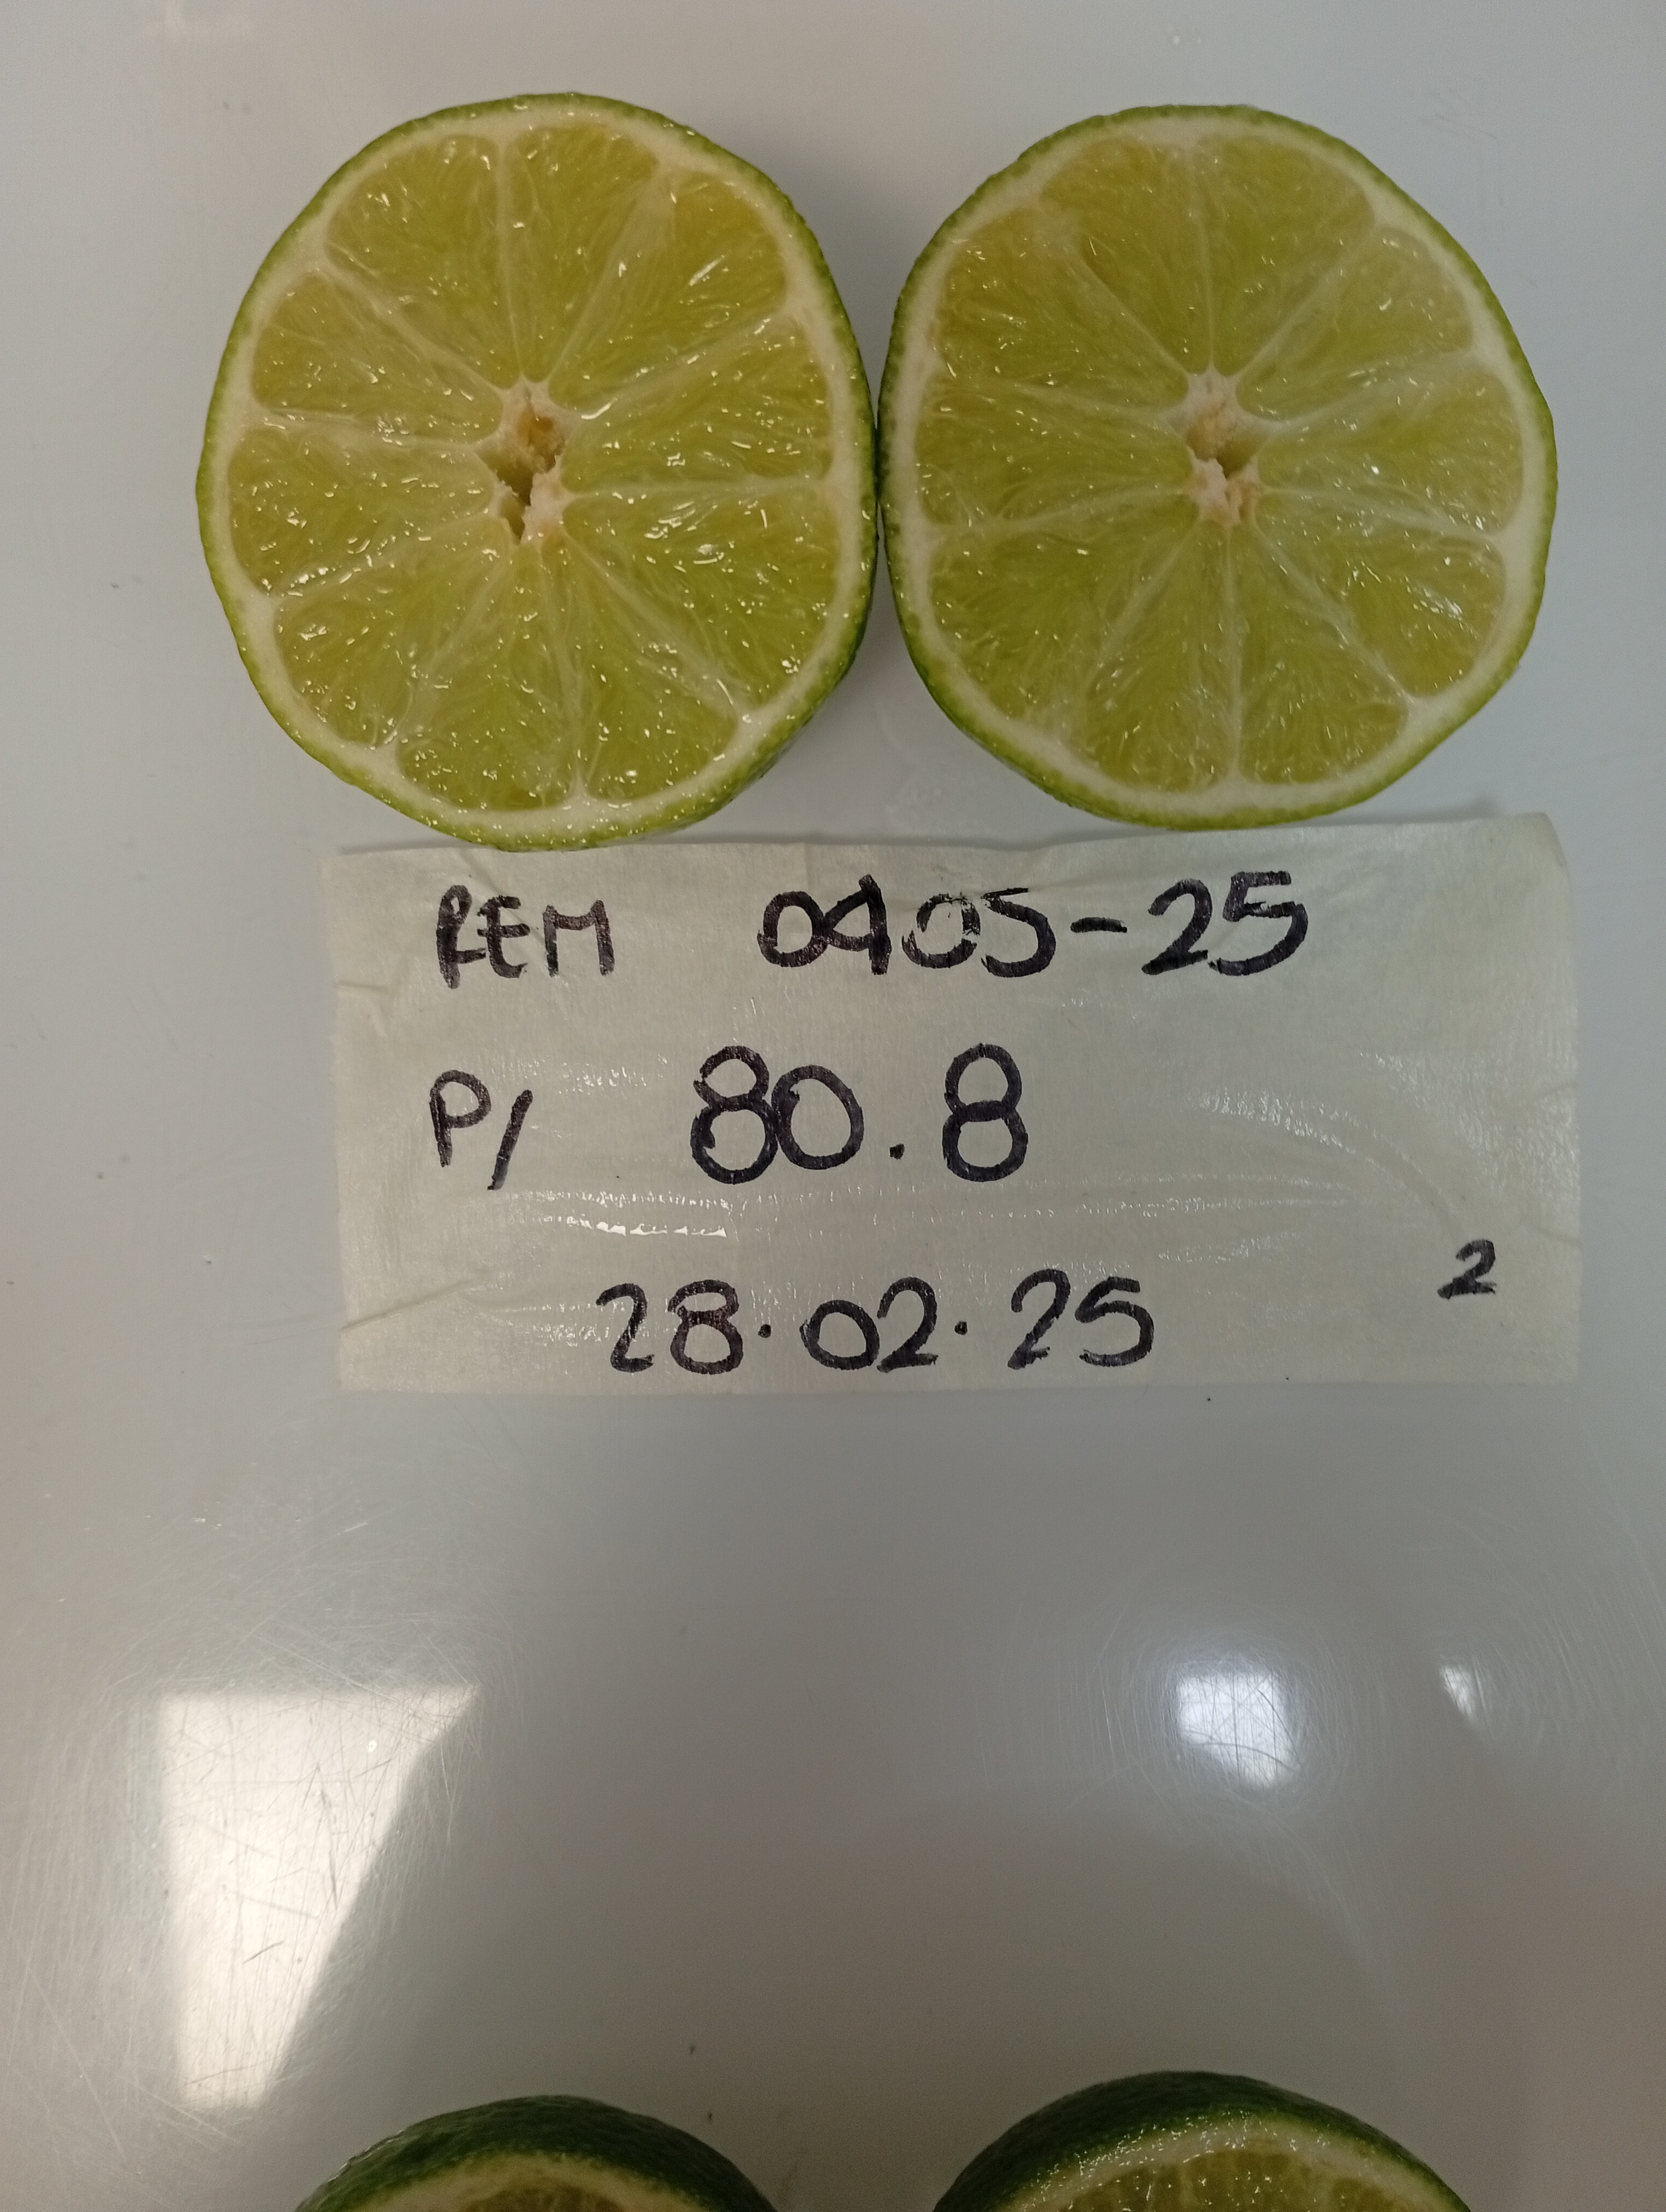 REM 0905-25
P/ 80.8
28.02.25
2